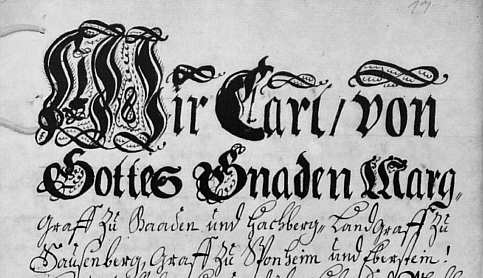 Wir Carl / von
Gottes Gnaden Marg„
Graff zu Baaden und Hachberg, Landgraff zu
Sausenberg, Graff zu Sponheim und Eberstein!